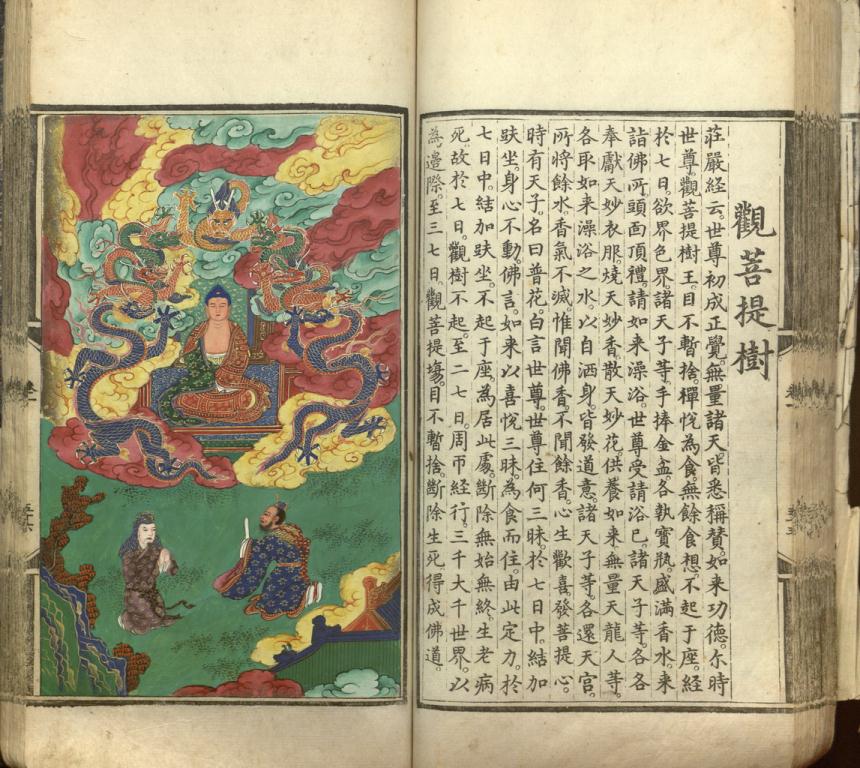 觀菩提樹
莊嚴經云。世尊初成正覺。無量諸天。皆悉稱贊。如來功德。尔時
世尊。觀菩提樹王。目不暫捨。禪悅為食。無餘食想。不起于座。經
於七日。欲界色界。諸天子等。手捧金盆。各執寶瓶。盛滿香水。來
詣佛所。頭面頂禮。請如來澡浴。世尊受請浴已。諸天子等。各各
奉獻天妙衣服。燒天妙香。散天妙花。供養如來。無量天龍人等。
各取如來澡浴之水。以自洒身。皆發道意。諸天子等。各還天宮。
所將餘水。香氣不滅。惟聞佛香。不聞餘香。心生歡喜。發菩提心。
時有天子。名曰普花。白言世尊。世尊住何三昧。於七日中。結加
趺坐。身心不動。佛言。如來以喜悅三昧。為食而住。由此定力。於
七日中。結加趺坐。不起于座。為居此處。斷除無始無終。生老病
死。故於七日。觀樹不起。至二七日。周帀經行。三千大千世界。以
為邊際。至三七日。觀菩提場。目不暫捨。斷除生死。得成佛道。